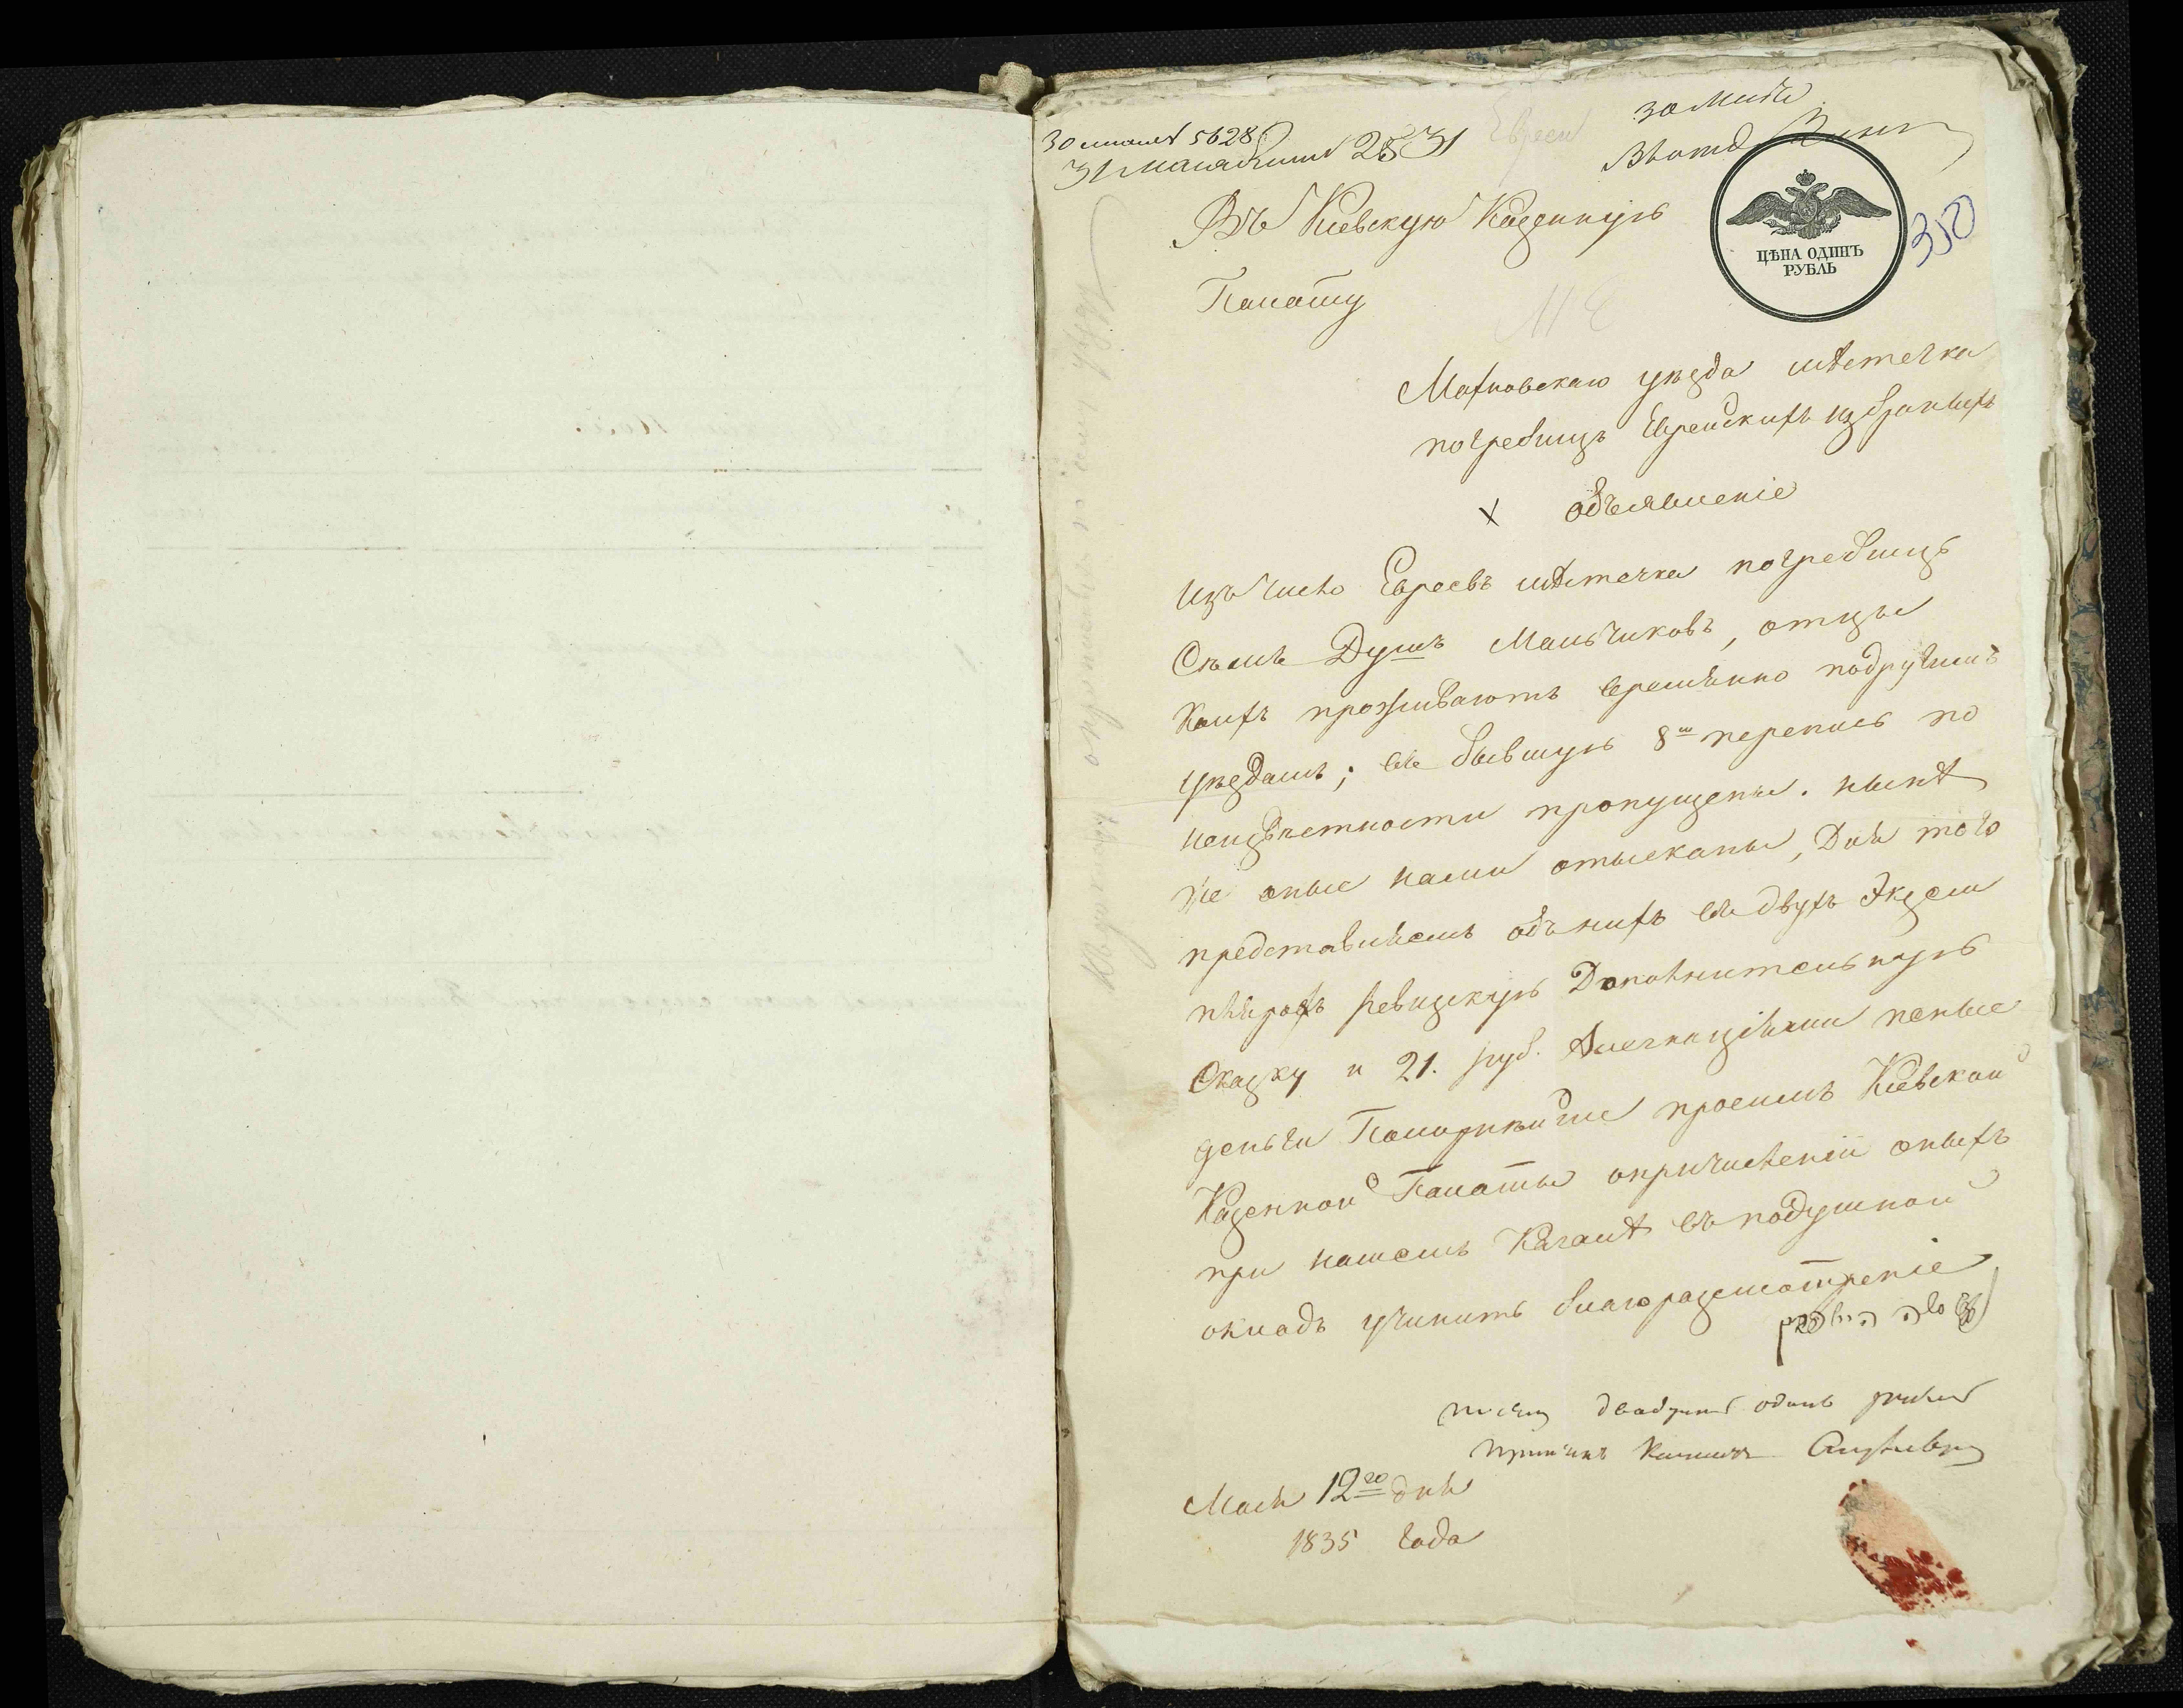 30 5628
31 2531
Евреи
30 Маія
Въ Кіевскую Казенную
ЦѢНА ОДИНЪ
РУБЛЬ
350
Палату
Махновскаго уѣзда мѣстечка
погребищъ Еврейскихъ избраныхъ
х объявленіе
изъ числа Евреевъ мѣстечка погребищъ
Съмъ Душъ Мальчиковъ, отцы
Коихъ проживаютъ времѣнно подругимъ
уѣздамъ; въ бывшую 8ю перепись по
неизвѣстности пропущены. нынѣ
же оные нами отысканы, Для того
представляемъ объ нихъ въ двухъ Экзем
плярахъ Ревизкую Дополнительную
Сказку и 21. руб. Ассигнаціями пеные
деньги Покорнѣйше просимъ Кіевской
Казенной Палаты опричисленіи оныхъ
при нашемъ Кагалѣ въ подушной
окладъ учинить благоразсмотреніе
двадцать одинъ рубль
Маія 12го дня
1835 Года